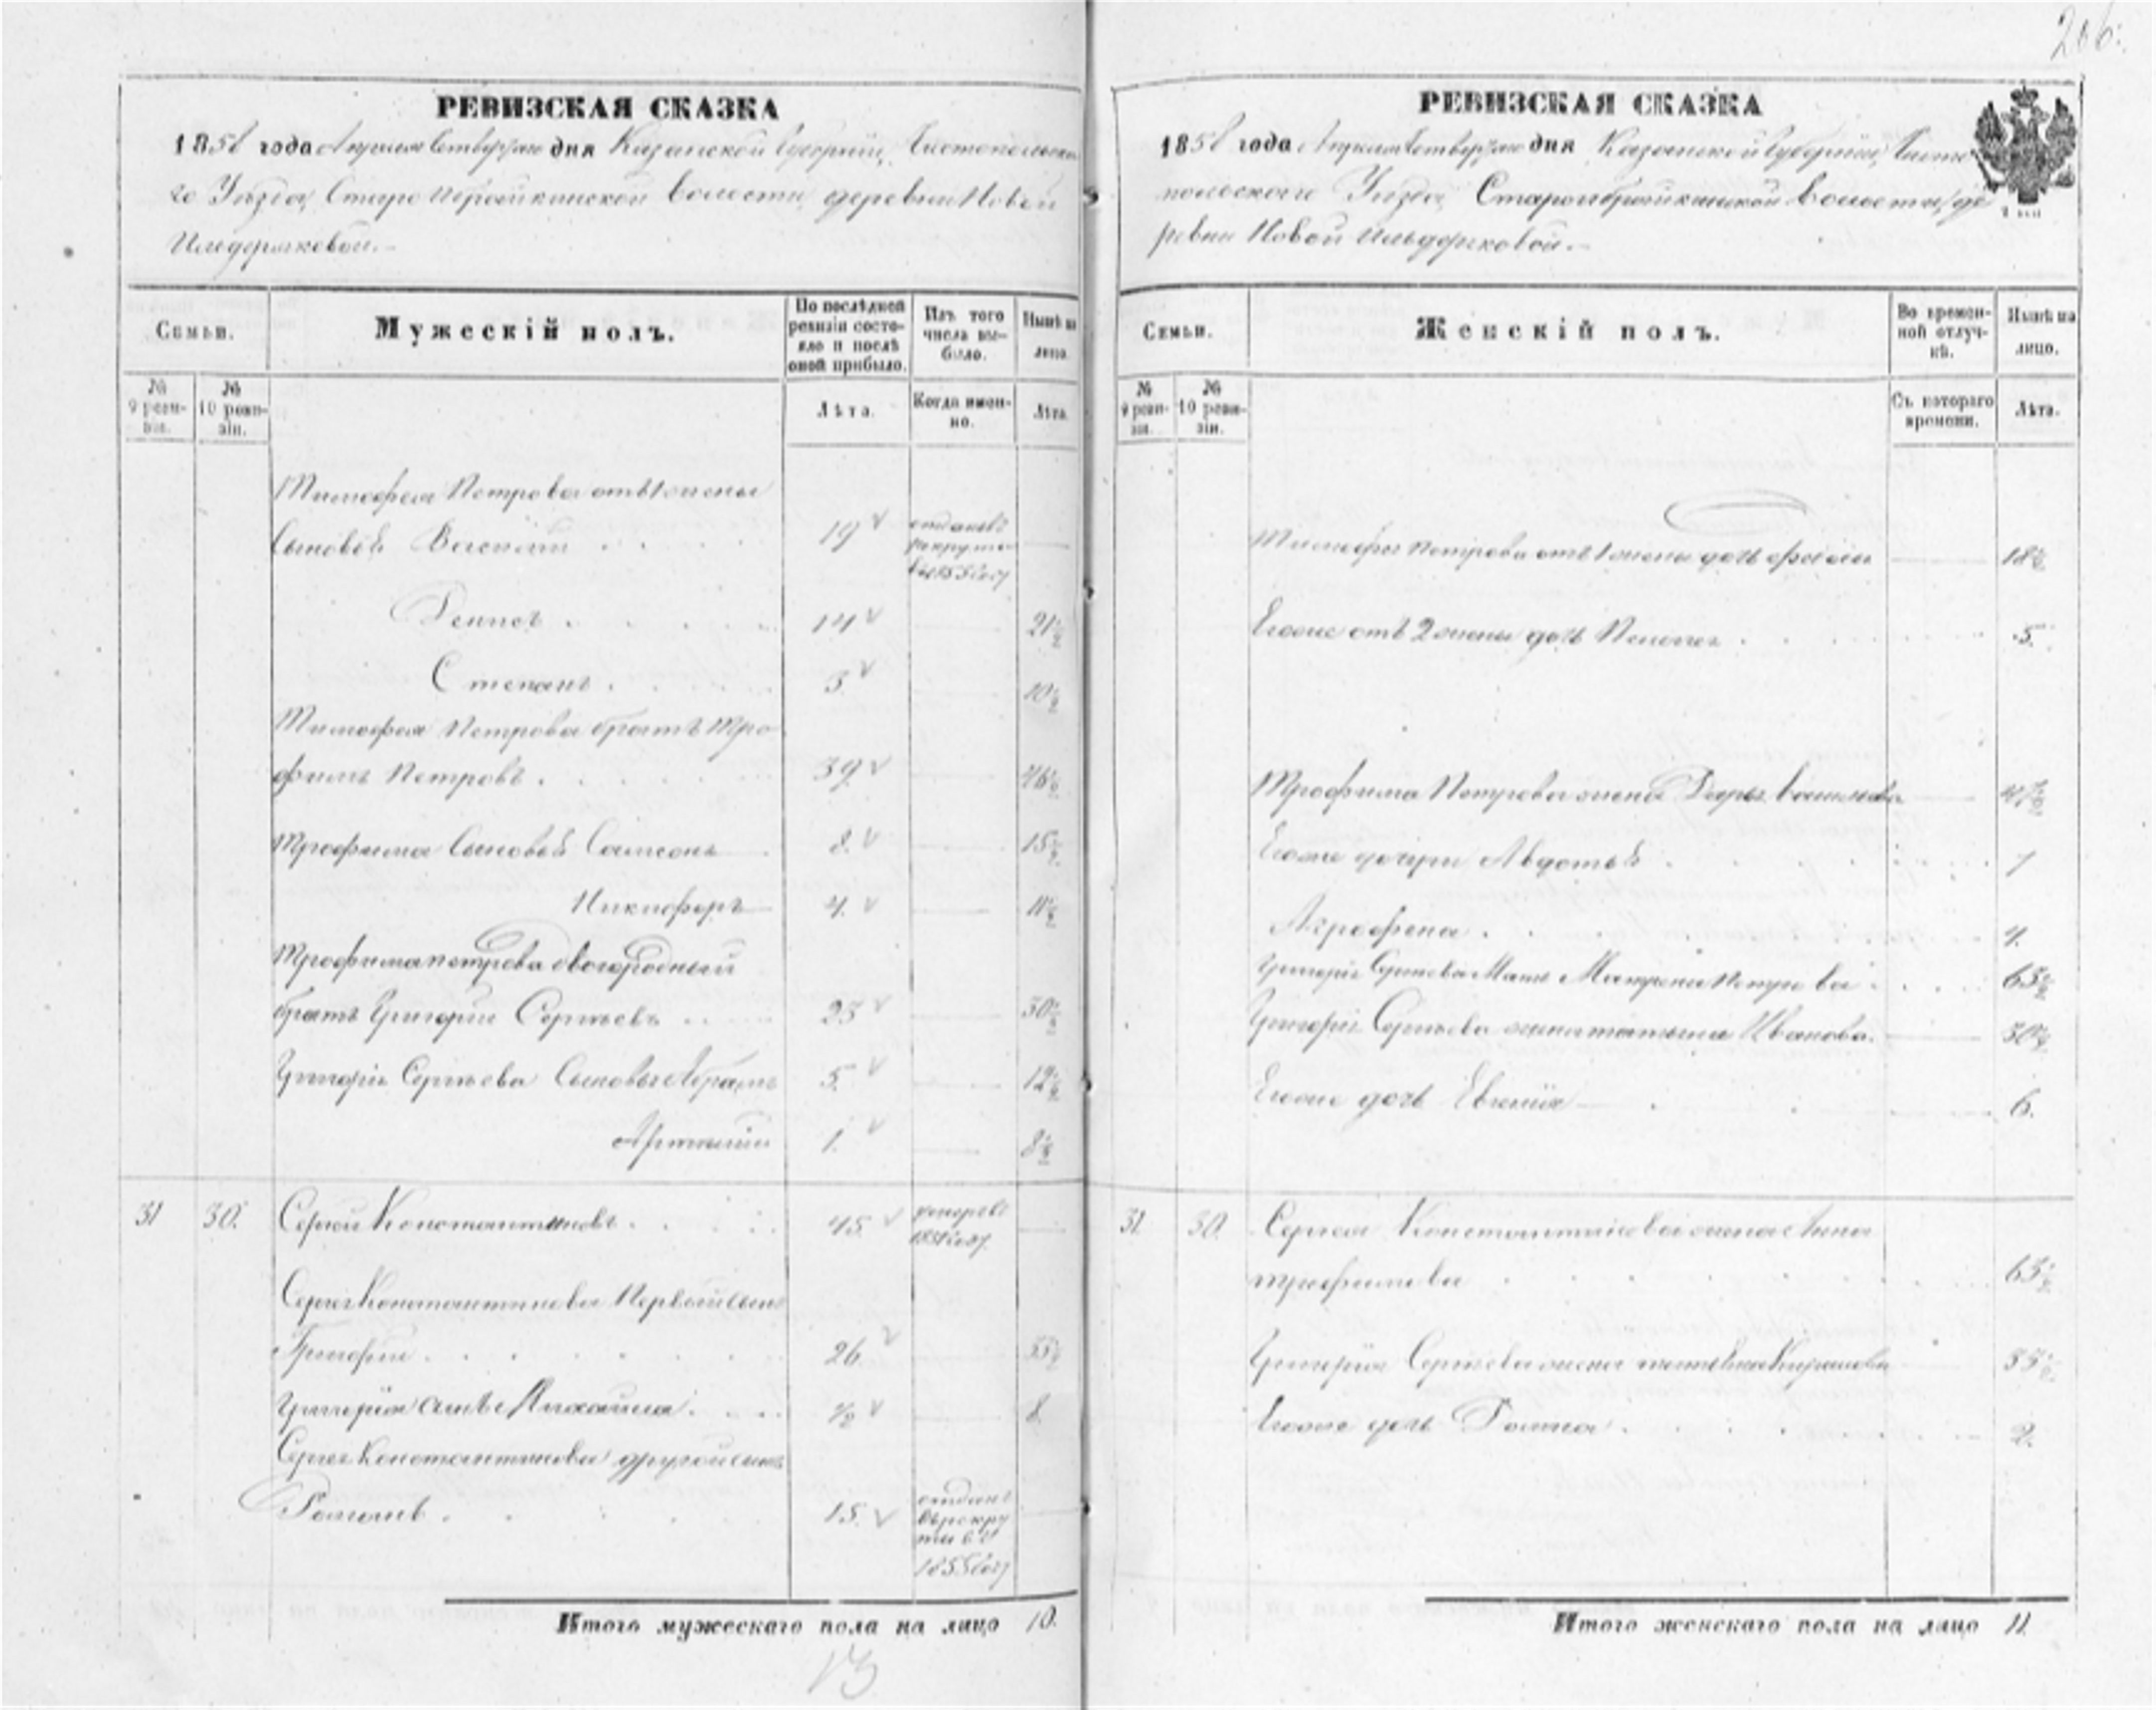 206.
РЕВИЗСКАЯ СКАЗКА
1858 года Апреля четвертаго дня Казанской Губернии, Чистопольска
го Уѣзда, Старо Ибрайкинской волости, деревни Новой
Ильдеряковой.
Семьи.
Мужескій полъ.
По послѣдней ревизіи состояло и послѣ оной прибыло.
Изъ того числа выбыло.
Нынѣ на лицо.
№ 9 ревизіи.
№ 10 ревизіи.
Лѣта.
Когда именно.
Лѣта.
Тимофея Петрова отъ 1 жены
сыновья Василий 19 отданъ в рекруты в 1855 году
Денисъ 14 21½
Степанъ 3 10½
Тимофея Петрова братъ Тро
фимъ Петровъ 39 46½
Трофима сыновья Самсонъ 8 15½
Никифоръ 4 11½
Трофима Петрова двоюродный
братъ Григорий Сергѣевъ 23 30½
Григорія Сергѣева сыновья Абрамъ 5 12½
1 8½
31 30. Сергей Константиновъ 45 умеръ в 1851 году
Сергея Константинова первый сынъ
Григорий 26 33½
Григорія сынъ Михайла ½ 8
Сергея Константинова другой сынъ
Романъ 15 отданъ в рекруты в 1855 году
Итого мужескаго пола на лицо 10.
13
РЕВИЗСКАЯ СКАЗКА
1858 года Апреля четвертаго дня Казанской Губернии, Чисто
польского Уѣзда, Староибрайкинской волости, де
ревни Новой Ильдеряковой.
Семьи.
Женскій полъ.
Во временной отлучкѣ.
Нынѣ на лицо.
№ 9 ревизіи.
№ 10 ревизіи.
Съ котораго времени.
Лѣта.
Тимофея Петрова отъ 1 жены дочь 18½
Егоже отъ 2 жены дочь 5.
Трофима Петрова жена Дарья Васильева 47½
Егоже дочери Авдотья 7
Агрофена 4.
Григорія Сергѣева мать Матрена Петрова 63½
Григорія Сергѣева жена Татьяна Иванова. 30½
Егоже дочь Евгенія 6.
31. 30. Сергея Константинова жена Анна
Трофимова 63½
Григорія Сергѣева жена 33½
Егоже дочь 2.
Итого женскаго пола на лицо 11.